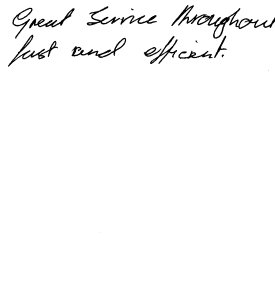 Great Service throughout
fast and efficient.